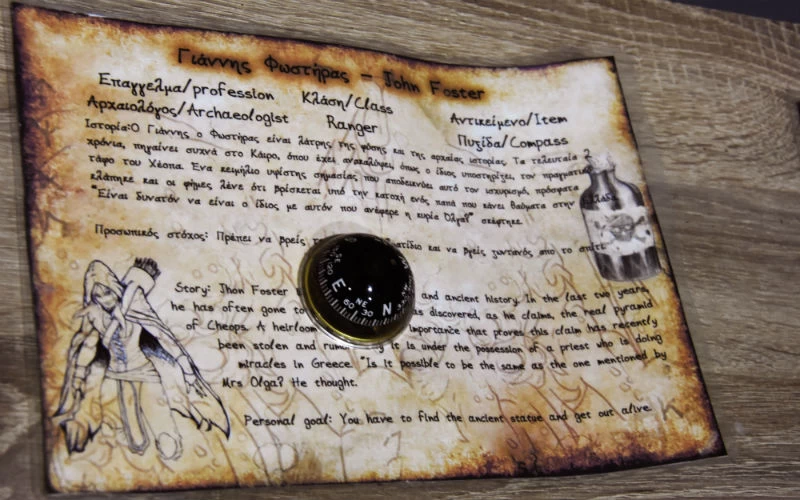 Γιάννης Φωστήρας - John Foster
Επαγγελμα/profession Κλάση/Class
Αρχαιολόγος/Archaeologist Ranger
Αντικείμενο/Item
Πυξίδα/Compass
Ιστορία:Ο Γιάννης ο Φωστήρας είναι λάτρης της φύσης και της αρχαίας ιστορίας. Τα τελευταία 2
χρόνια, πηγαίνει συχνά στο Κάιρο, όπου έχει ανακαλύψει, όπως ο ίδιος υποστηρίζει, τον πραγματικό
τάφο του Χέοπα. Ενα κειμήλιο υψίστης σημασίας που αποδεικνύει αυτό τον ισχυρισμό, πρόσφατα
κλάπηκε και οι φήμες λένε ότι βρίσκεται υπό την κατοχή ενός παπά που κάνει θαύματα στην Ελλάδα.
"Είναι δυνατόν να είναι ο ίδιος με αυτόν που ανέφερε η κυρία Όλγα?" σκέφτηκε.
Προσωπικός στόχος: Πρέπει να βρείς και να βγείς ζωντανός απο το σπίτι.
Story: Jhon Foster and ancient history. In the last two years,
he has often gone to discovered, as he claims, the real pyramid
of Cheops. A heirloom importance that proves this claim has recently
been stolen and it is under the possession of a priest who is doing
miracles in Greece. "Is it possible to be the same as the one mentioned by
Mrs Olga? He thought.
Personal goal: You have to find the ancient statue and get out alive.
E
NE
N
60
30